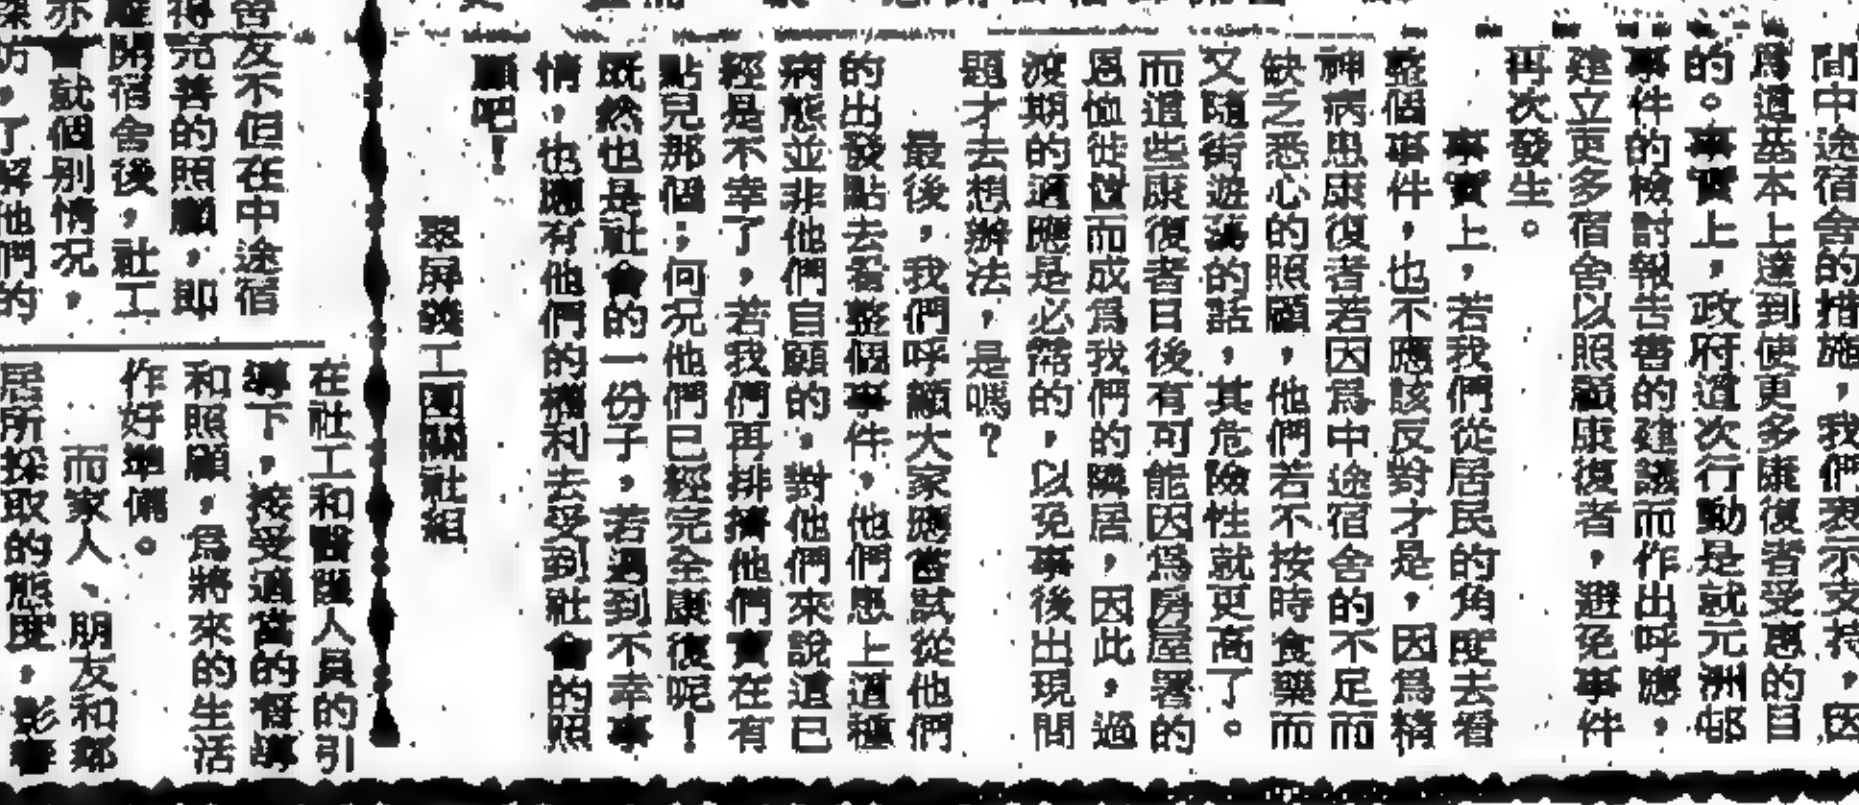 間中途宿舍的措施，我們表示支持，因
爲這基本上達到使更多康復者受惠的目
的。事實上，政府這次行動是就元洲邨
事件的檢討報告書的建議而作出呼應，
建立更多宿舍以照顧康復者，避免事件
再次發生。
事實上，若我們從居民的角度去看
整個事件，也不應該反對才是，因爲精
神病患康復者若因爲中途宿舍的不足而
缺乏悉心的照顧，他們若不按時食藥而
又隨街遊蕩的話，其危險性就更高了。
而這些康復者日後有可能因爲房屋署的
恩恤徙置而成爲我們的隣居，因此，過
渡期的適應是必需的，以免事後出現問
題才去想辦法，是嗎？
最後，我們呼籲大家應嘗試從他們
的出發點去看整個事件，他們患上這種
病態並非他們自願的，對他們來說這已
經是不幸了，若我們再排擠他們實在有
點兒那個；何況他們已經完全康復呢！
既然也是社會的一份子，若遇到不幸事
情，也應有他們的權利去受到社會的照
顧吧！
翠屏義工團關社組
舍友不但在中途宿
得完善的照顧，即
離開宿舍後，社工
亦會就個別情况，
探訪，了解他們的
在社工和醫護人員的引
導下，接受適當的輔導
和照顧，爲將來的生活
作好準備。
而家人、朋友和鄰
居所採取的態度，影響